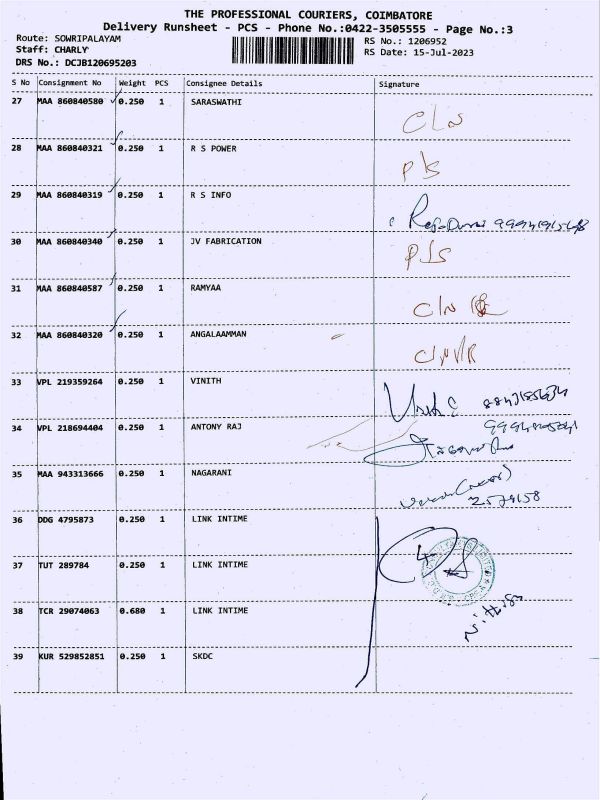 THE PROFESSIONAL COURIERS, COIMBATORE
Delivery Runsheet - PCS - Phone No.:0422-3505555 - Page No.:3
Route: SOWRIPALAYAM RS No.: 1206952
Staff: CHARLY RS Date: 15-Jul-2023
DRS No.: DCJB120695203
S No Consignment No Weight PCS Consignee Details Signature
27 MAA 860840580 0.250 1 SARASWATHI
28 MAA 860840321 0.250 1 R S POWER
29 MAA 860840319 0.250 1 R S INFO
30 MAA 860840340 0.250 1 JV FABRICATION
31 MAA 860840587 0.250 1 RAMYAA
32 MAA 860840320 0.250 1 ANGALAAMMAN
33 VPL 219359264 0.250 1 VINITH
34 VPL 218694404 0.250 1 ANTONY RAJ
35 MAA 943313666 0.250 1 NAGARANI
36 DDG 4795873 0.250 1 LINK INTIME
37 TUT 289784 0.250 1 LINK INTIME
38 TCR 29074063 0.680 1 LINK INTIME
39 KUR 529852851 0.250 1 SKDC